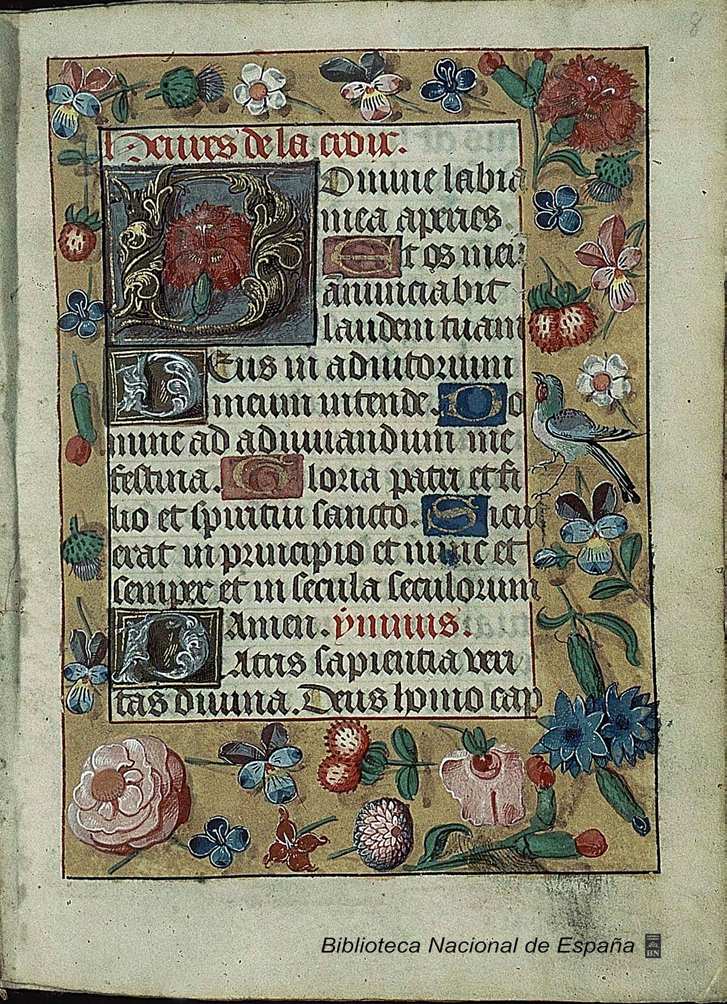 8
Heures de la croix.
Domine labia
mea aperies.
Et os meũ
anunciabit
laudem tuam
Deus in adiutorium
meum intende. Do
mine ad adiuuandum me
festina. Gloria patri et fi
lio et spiritui sancto. Sicut
erat in principio et nunc et
semper et in secula seculorum
Amen. ymnus.
Patris sapientia veri
tas diuina. Deus homo cap
Biblioteca Nacional de España
BN